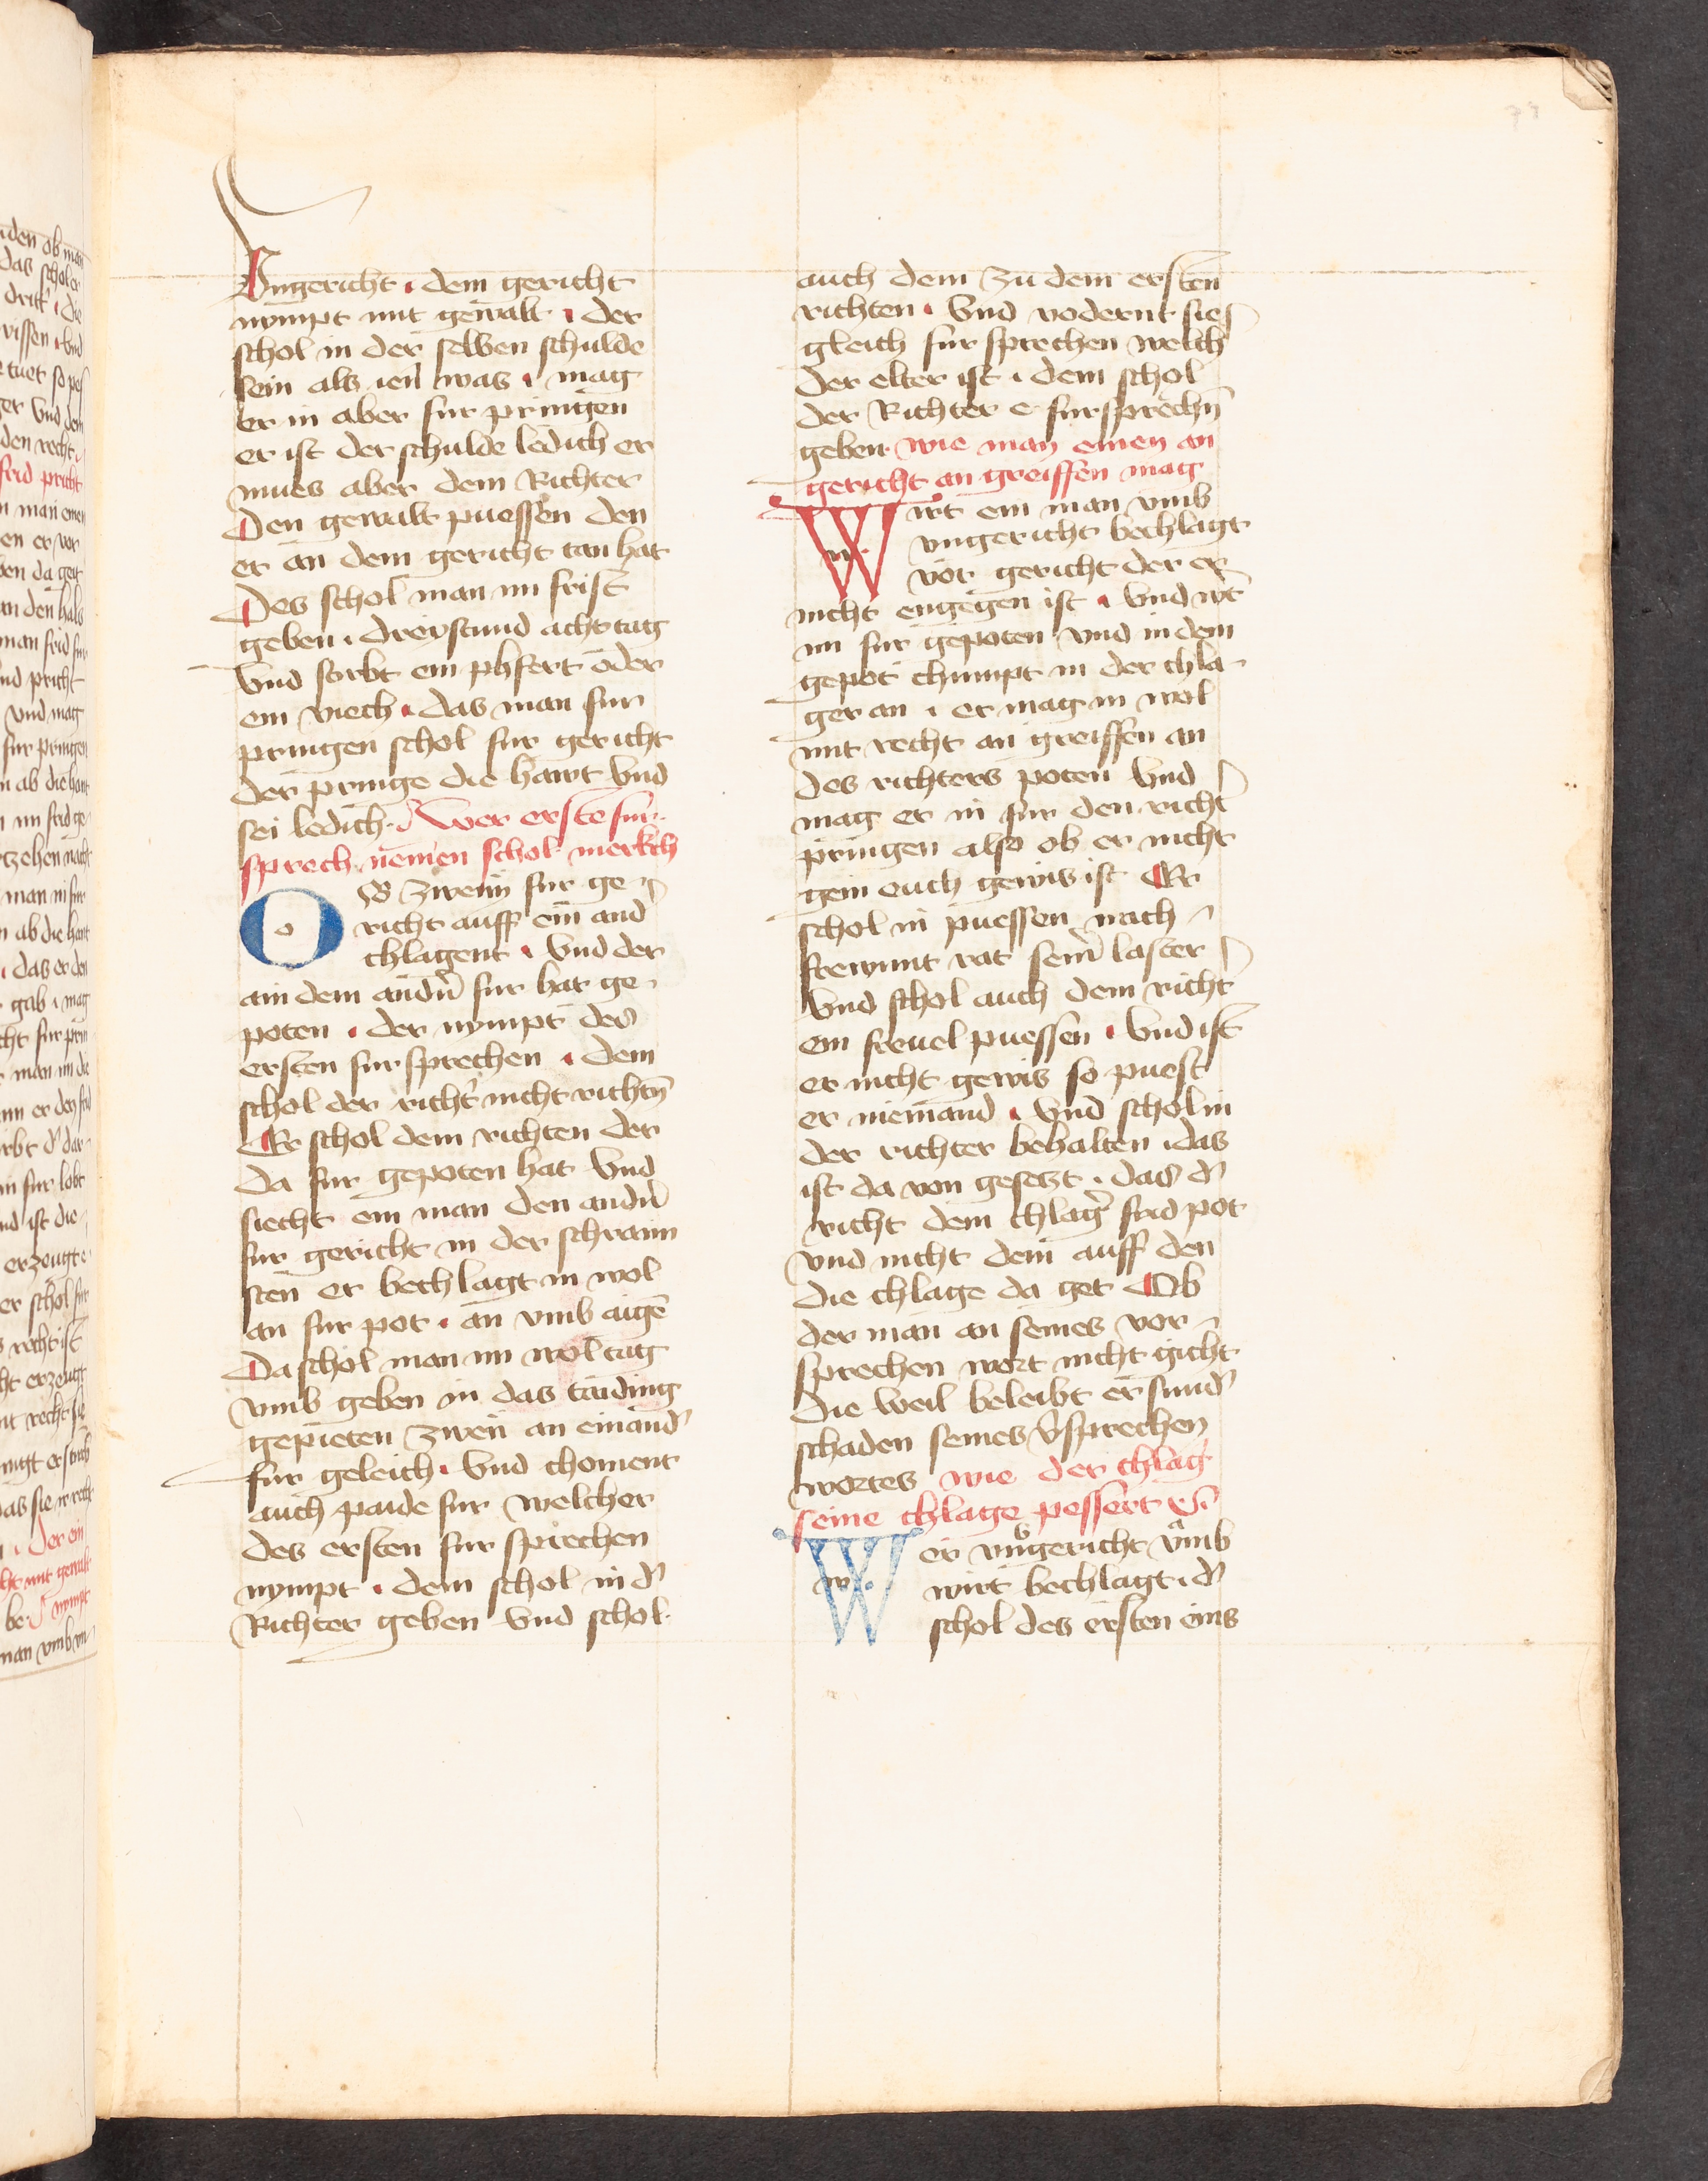 Vngericht . dem gericht
nympt mit gewalt . der
schol in der selben schulde
sein als ien was . mag
er in aber fur pringen
er ist der schulde ledich er
mues aber dem Richter
Den gewalt puessen den
er an dem gericht tan hat
Des schol man im frist
geben . dreystund acht tag
Vnd stirbt ein phfert oder
ein viech . das man fur
pringen schol fur gericht
der pringe die hawt Vnd
sei ledich . Wer erste fur
sprech nemen schol merkch
OB zwenn fur ge
richt auff ein and
chlagent . Vnd der
ain dem andn̄ fur hat ge
poten . der nympt des
ersten fursprechen . dem
schol der richt̄ nicht richtn̄
Er schol dem richten der
da fur gepoten hat Vnd
siecht ein man den andn̄
fur gericht in der schrann
sten er bechlagt in wol
an fur pot . an vmb aigē
Da schol man im wol tag
vmb geben in das taiding
gepieten zwen an einand̄
fur geleich . Vnd choment
auch paide fur welcher
des ersten fur sprechen
nympt . dem schol in d̄
Richter geben Vnd schol
auch dem zu dem ersten
richten . Vnd vodernt sie
gleich fur sprechen welch
der elter ist . dem schol
der Richter e fursprechn̄
geben . wie man einen an
gericht an greiffen mag
Wirt ein man vmb
vngericht bechlagt
vor gericht der er
nicht engegen ist . Vnd wt
im fur gepoten vnd in dem
gepot chumpt in der chla
ger an . er mag in wol
mit recht an greiffen an
des richters poten Vnd
mag er in fur den richt̄
pringen also ob er nicht
gein euch gewis ist Er
schol in puessen nach
frewnnt rat sein̄ laster
Vnd schol auch dem richt̄
ein freuel puessen . Vnd ist
er nicht gewis so puest
er niemand . Vnd schol in
der richter behalten . das
ist da von gesetzt . das d̄
richt dem chlaḡ frid pot
vnd nicht dem auff den
die chlage da get Ob
der man an seines vor
sprechen wort nicht gicht
die weil beleibt er sund̄
schaden seines v̄sprechen
wortes wie der chlag
seine chlage pessert etc
Wer vngericht vmb
wirt bechlagt . d̄
schol des ersten eins